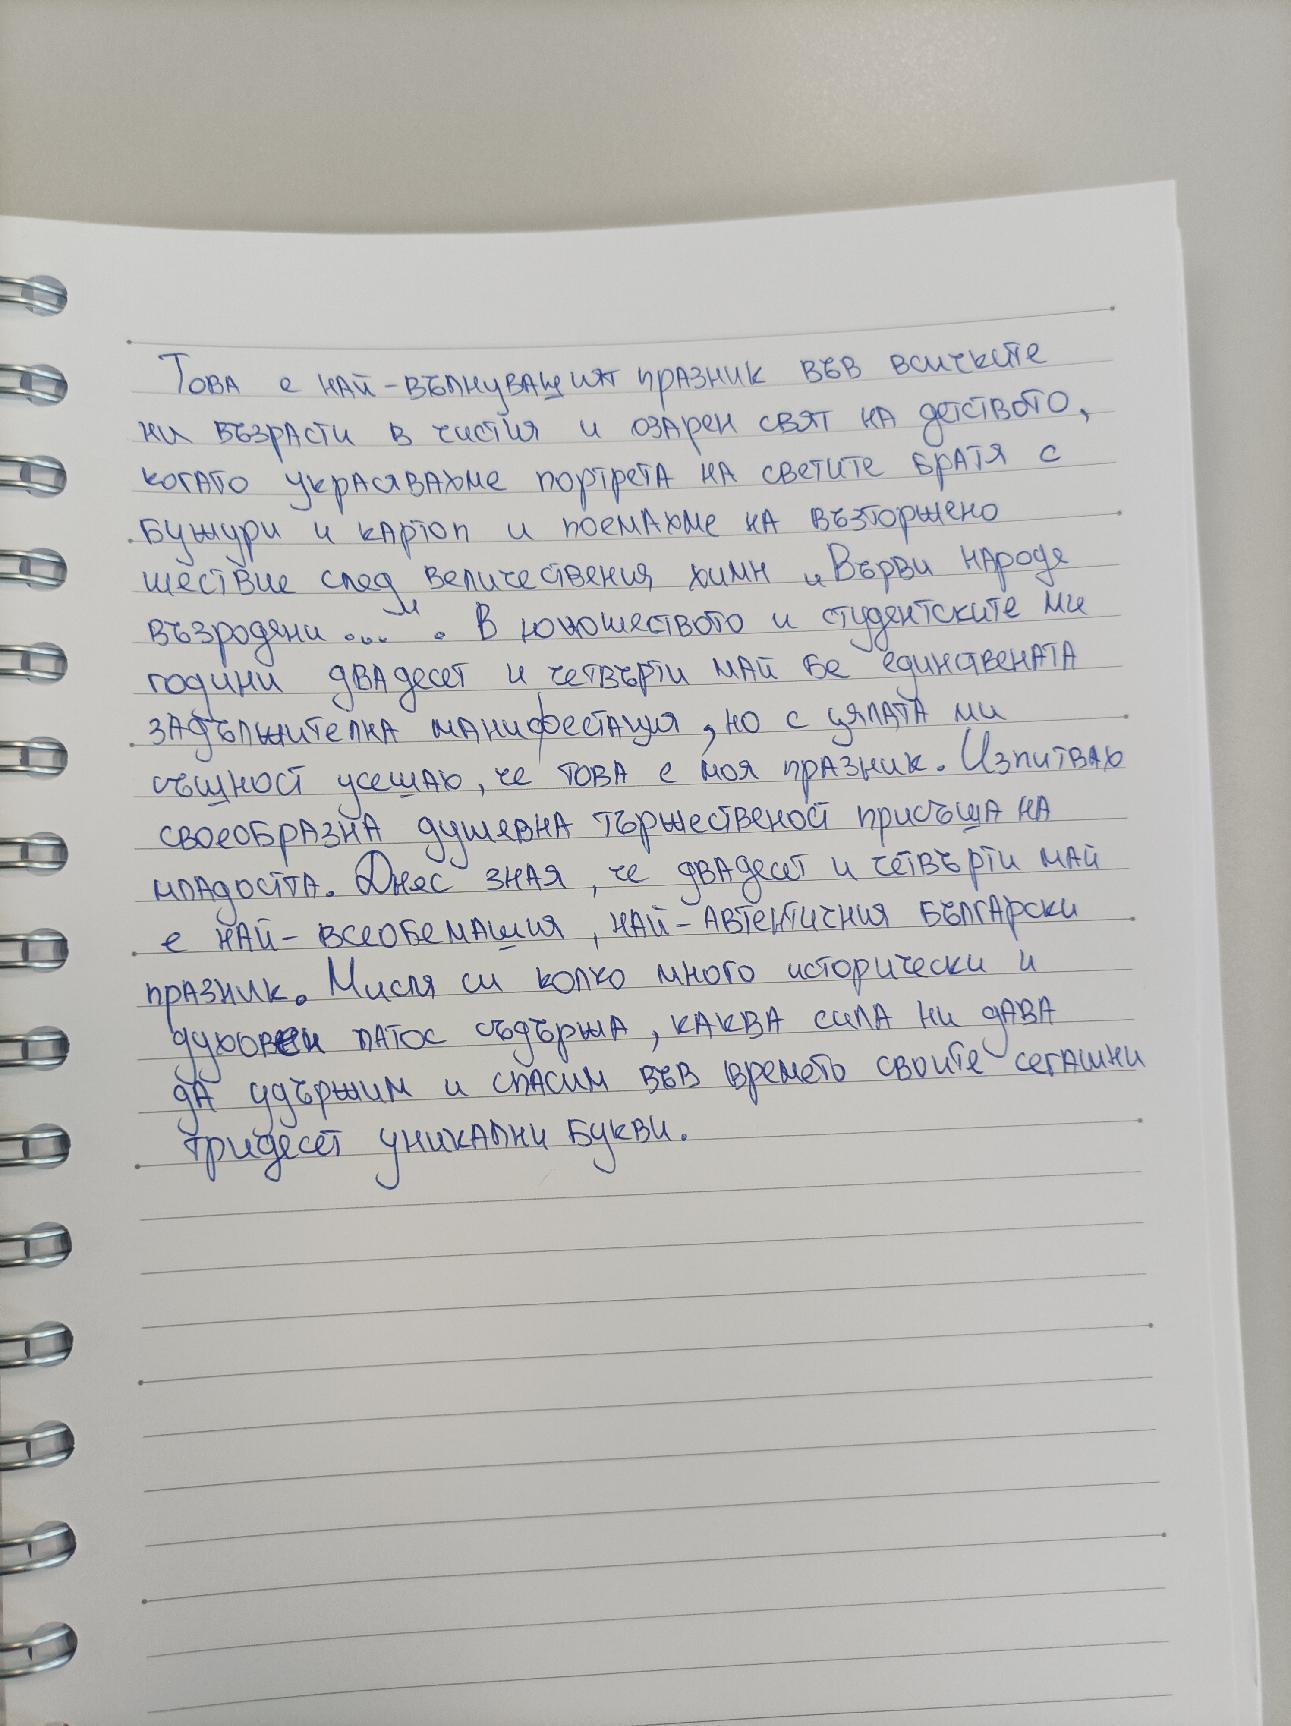 Това е най-вълнуващият празник във всичките
ни възрасти в чистия и озарен свят на детството,
когато украсявахме портрета на светите братя с
бужури и картоп и поемахме на възторжено
шествие след величествения химн „Върви народе
възродени...". В юношеството и студентските ми
години двадесет и четвърти май бе единствената
задължителна манифестация, но с цялата ми
същност усещаю, че това е моя празник. Изпитваю
своеобразна душевна тържественост присъща на
младостта. Днес зная, че двадесет и четвърти май
е най-всеобемащия, най-автентичния български
празник. Мисля си колко много исторически и
духовен патос съдържа, каква сила ни дава
да удържим и спасим във времето своите сегашни
тридесет уникални букви.